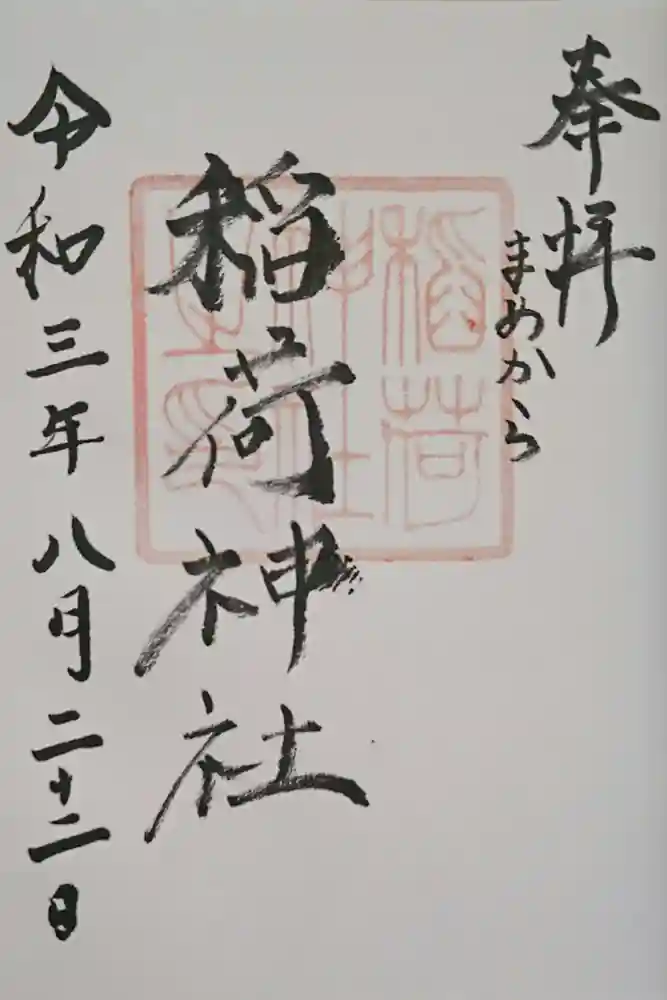 奉拝
まめから
稲荷神社
稲荷
神社
之印
令和三年八月二十二日